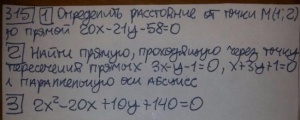 315 1 Определить расстояние от точки M(1;2)
до прямой 20x-21y-58=0
2 Найти прямую, проходящую через точку
пересечения прямых 3x-y-1=0, x+3y+1=0
и параллельную оси абсцисс
3 2x²-20x+10y+140=0